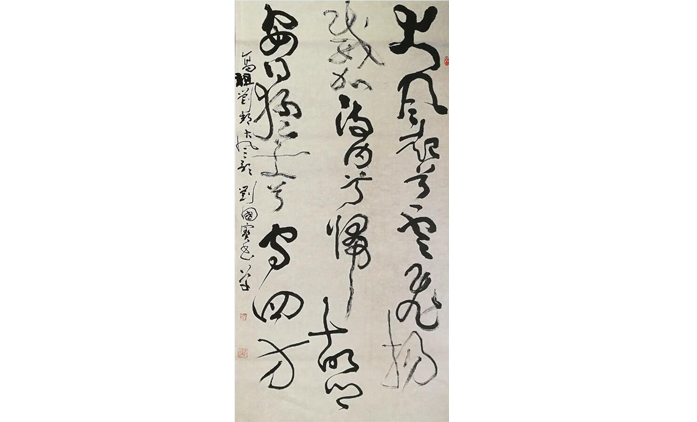 大風起兮雲飛揚
威加海内兮歸故鄉
安得猛士兮守四方
高祖劉邦大風歌 劉國寶書